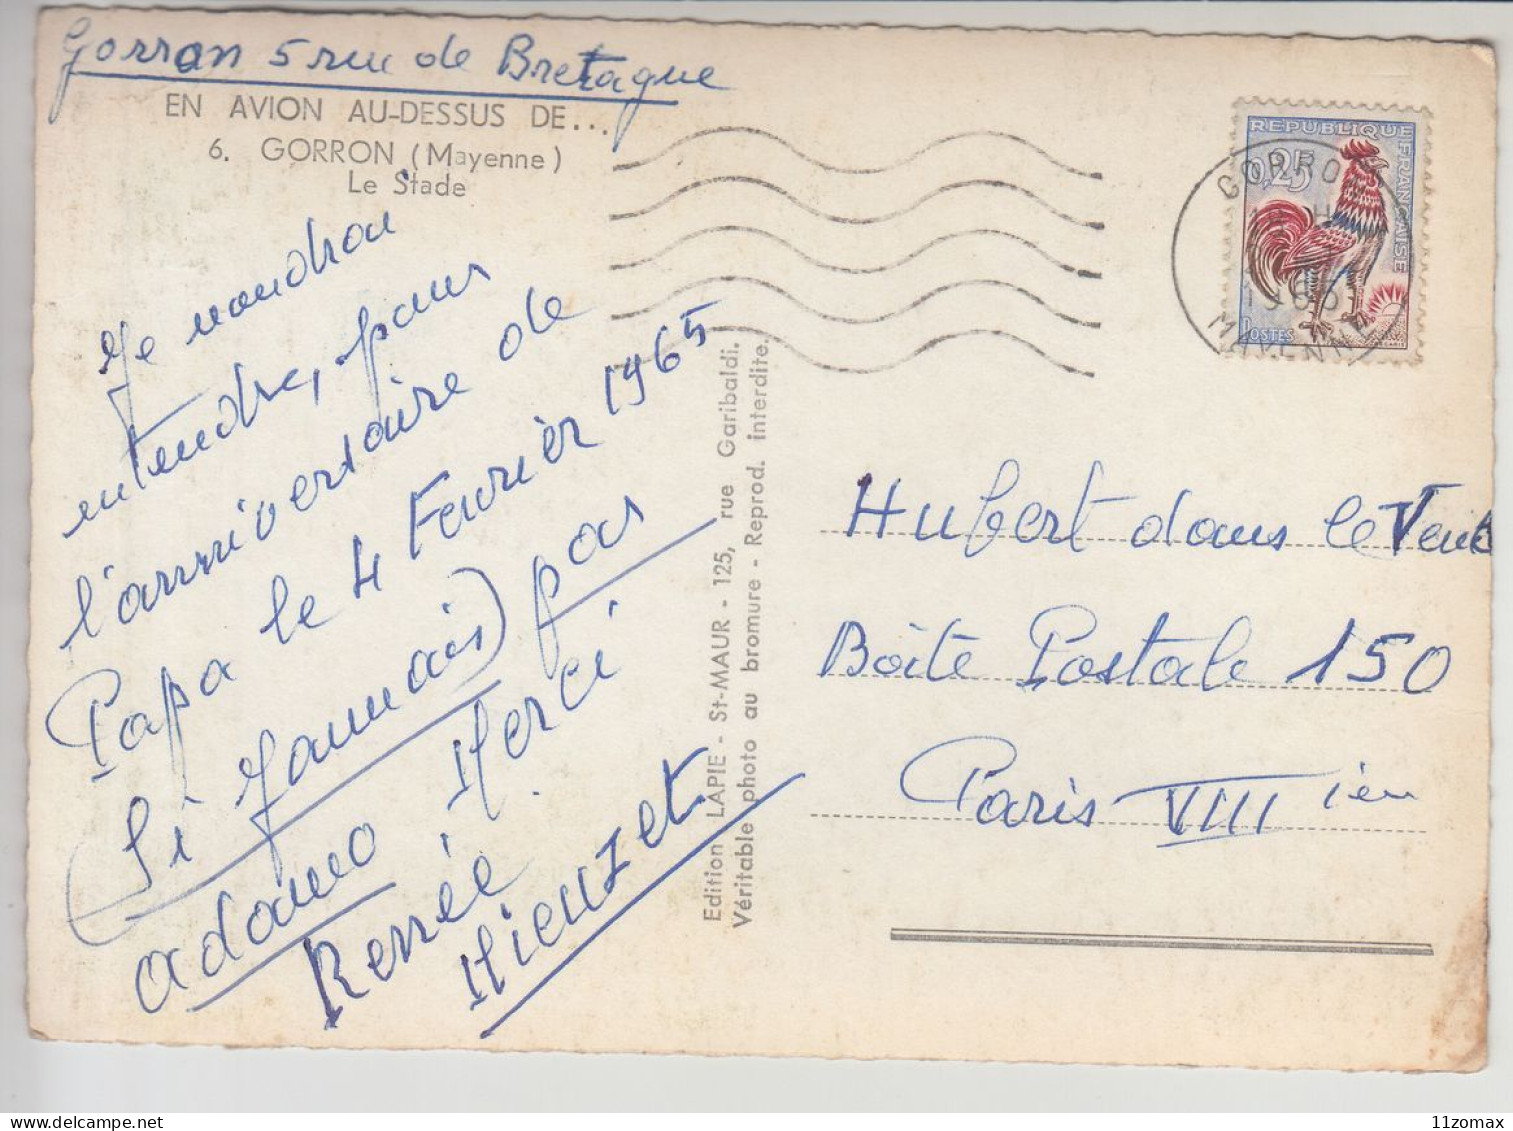 Gorron 5 rue de Bretague
EN AVION AU-DESSUS DE...
6. GORRON (Mayenne)
Le Stade
Je voudrou
entendre, pour
l'anniversaire de
Papa le 4 Fevrier 1965
(Si Jammais) par
adamo Merci
Renée
Edition LAPIE - St-MAUR - 125, rue Garibaldi.
Véritable photo au bromure - Reprod. interdite.
REPUBLIQUE FRANÇAISE
0,25
POSTES
DECARIS
GORRON
MAYENNE
Hubert dans le Vent
Boite Postale 150
Paris VIII ieu
11zomax